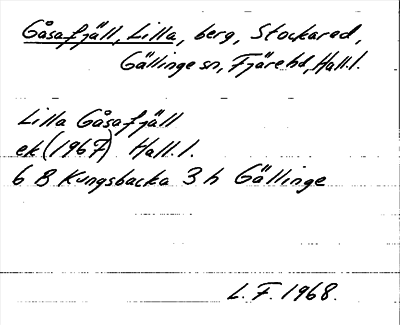 Gåsafjäll, Lilla, berg, Stockared,
Gällinge sn, Fjäre hd, Hall.l.
Lilla Gåsafjäll
ek (1967) Hall.l.
6 B Kungsbacka 3 h Gällinge
L. F. 1968.